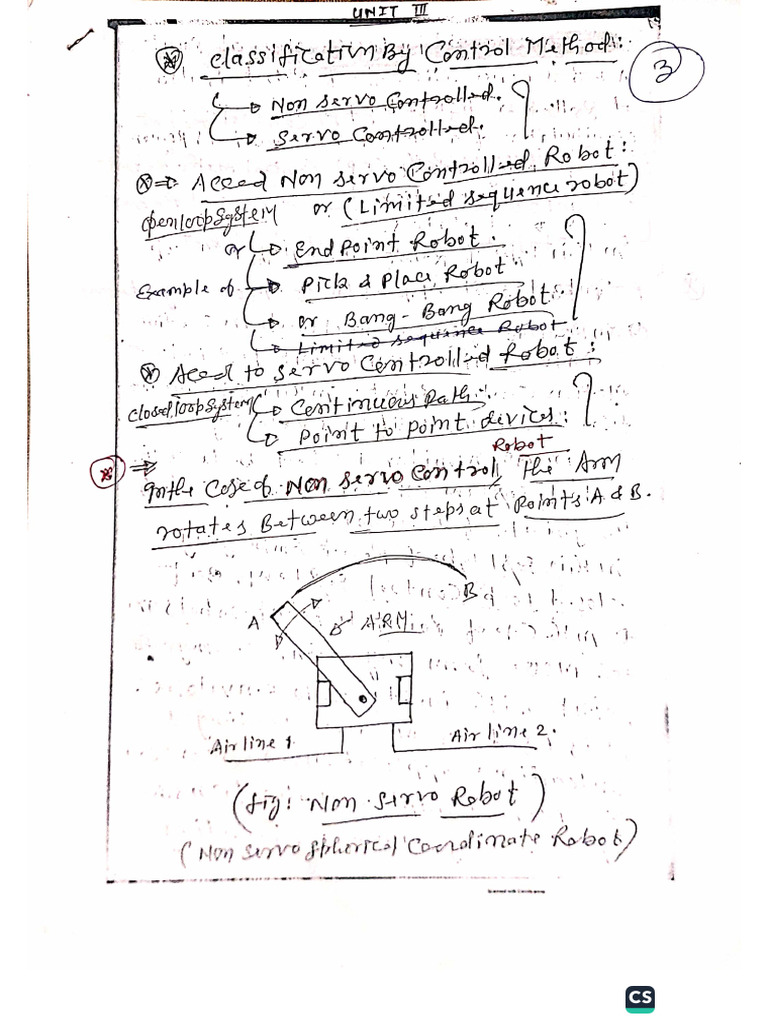 UNIT III
Classification By Control Method:
3
Non Servo Controlled.
Servo Controlled.
⇒ Acced Non servo Controlled Robot:
Open loop System or (Limited sequence robot)
or End Point Robot.
Example of Pick & Place Robot
or Bang-Bang Robot.
Limited sequence Robot
Acced to servo Controlled Robot:
Closed loop System Continuous Path:
Point to point devices:
⇒ Robot
In the Case of Non servo control, The Arm
rotates Between two steps at Points A & B.
B
A ARM
Air line 1 Air line 2.
(fig: Non Servo Robot)
(Non servo spherical Coordinate Robot)
CS